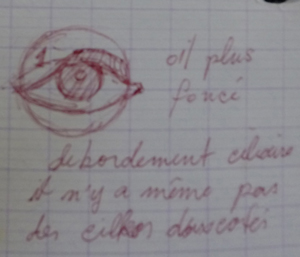 œil plus
foncé
debordement ciliaire
il n'y a même pas
des cilkos